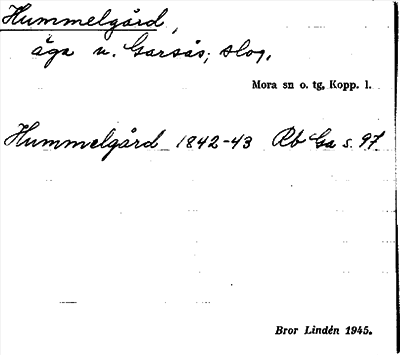 Hummelgård,
äga n. Garsås; skog.
Mora sn o. tg, Kopp. l.
Hummelgård 1842-43 Rb Ga s. 97.
Bror Lindén 1945.